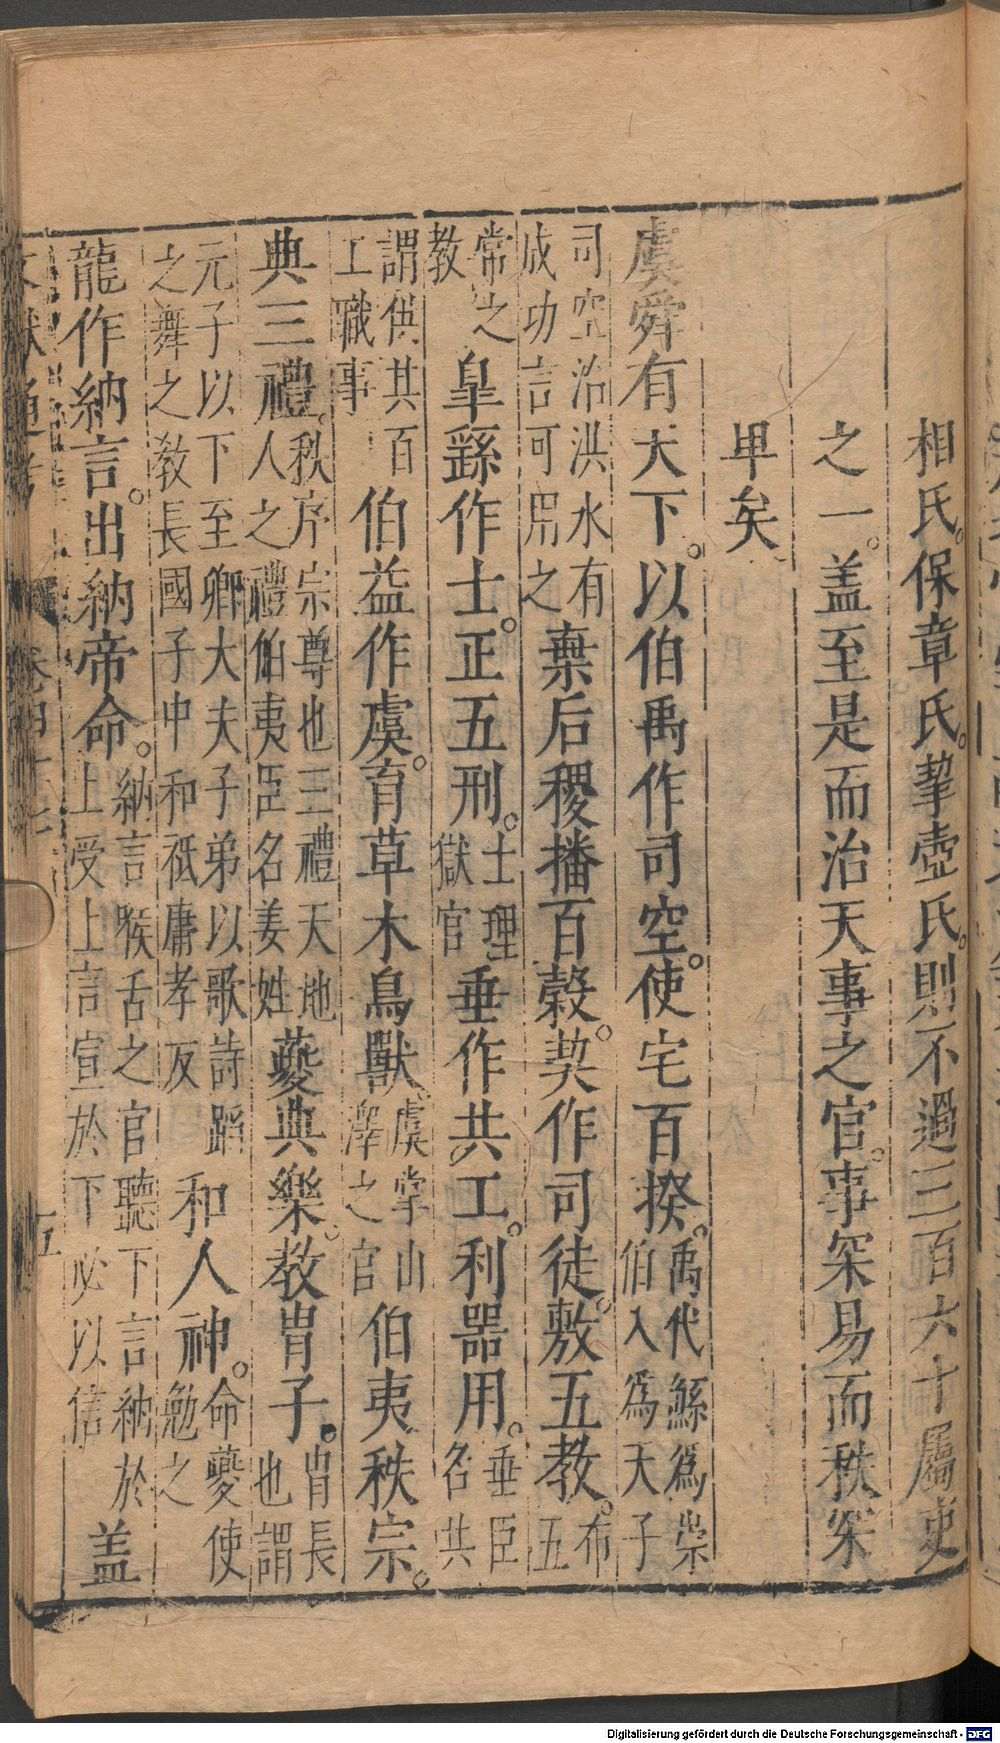 相氏保章氏挈壺氏則不過三百六十屬吏
之一。盖至是而治天事之官。事罙易而秩罙
甲矣
虞舜有天下。以伯禹作司空。使宅百揆。禹代鯀爲崇伯入爲天子
司空治洪水有成功言可用之棄后稷播百穀。契作司徒。敷五教。布五
常之教皐繇作士。正五刑。士理獄官垂作共工。利器用。垂臣名共
謂供其百工職事伯益作虞。育草木鳥獸。虞掌山澤之官伯夷秩宗。
典三禮。秩序宗尊也三禮天地人之禮伯夷臣名姜姓䕫典樂。教胄子。胄長也謂
元子以下至卿大夫子弟以歌詩蹈之舞之敎長國子中和祗庸孝友和人神。命夔使勉之
龍作納言。出納帝命。納言喉舌之官聽下言納於上受上言宣於下必以信盖
文獻通考 卷四十七 五
Digitalisierung gefördert durch die Deutsche Forschungsgemeinschaft - DFG